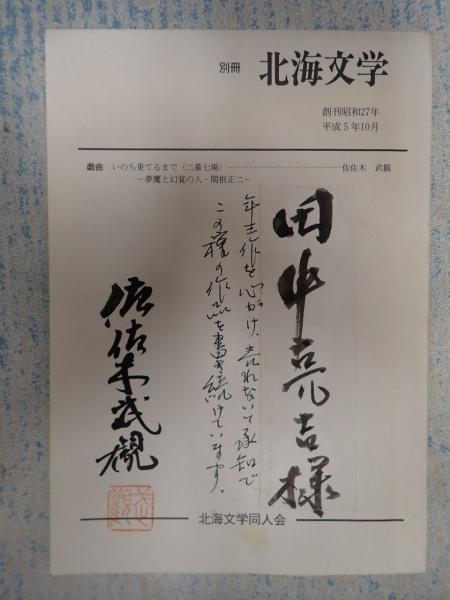 別冊 北海文学
創刊昭和27年
平成5年10月
戯曲 いのち果てるまで(二幕七場)……………………………………佐佐木 武観
－夢魔と幻覚の人・関根正二－
田中亮吉様
年主作を心がけ、売れないと承知で、
この種の作品を書き続けています。
佐佐木武観
北海文学同人会